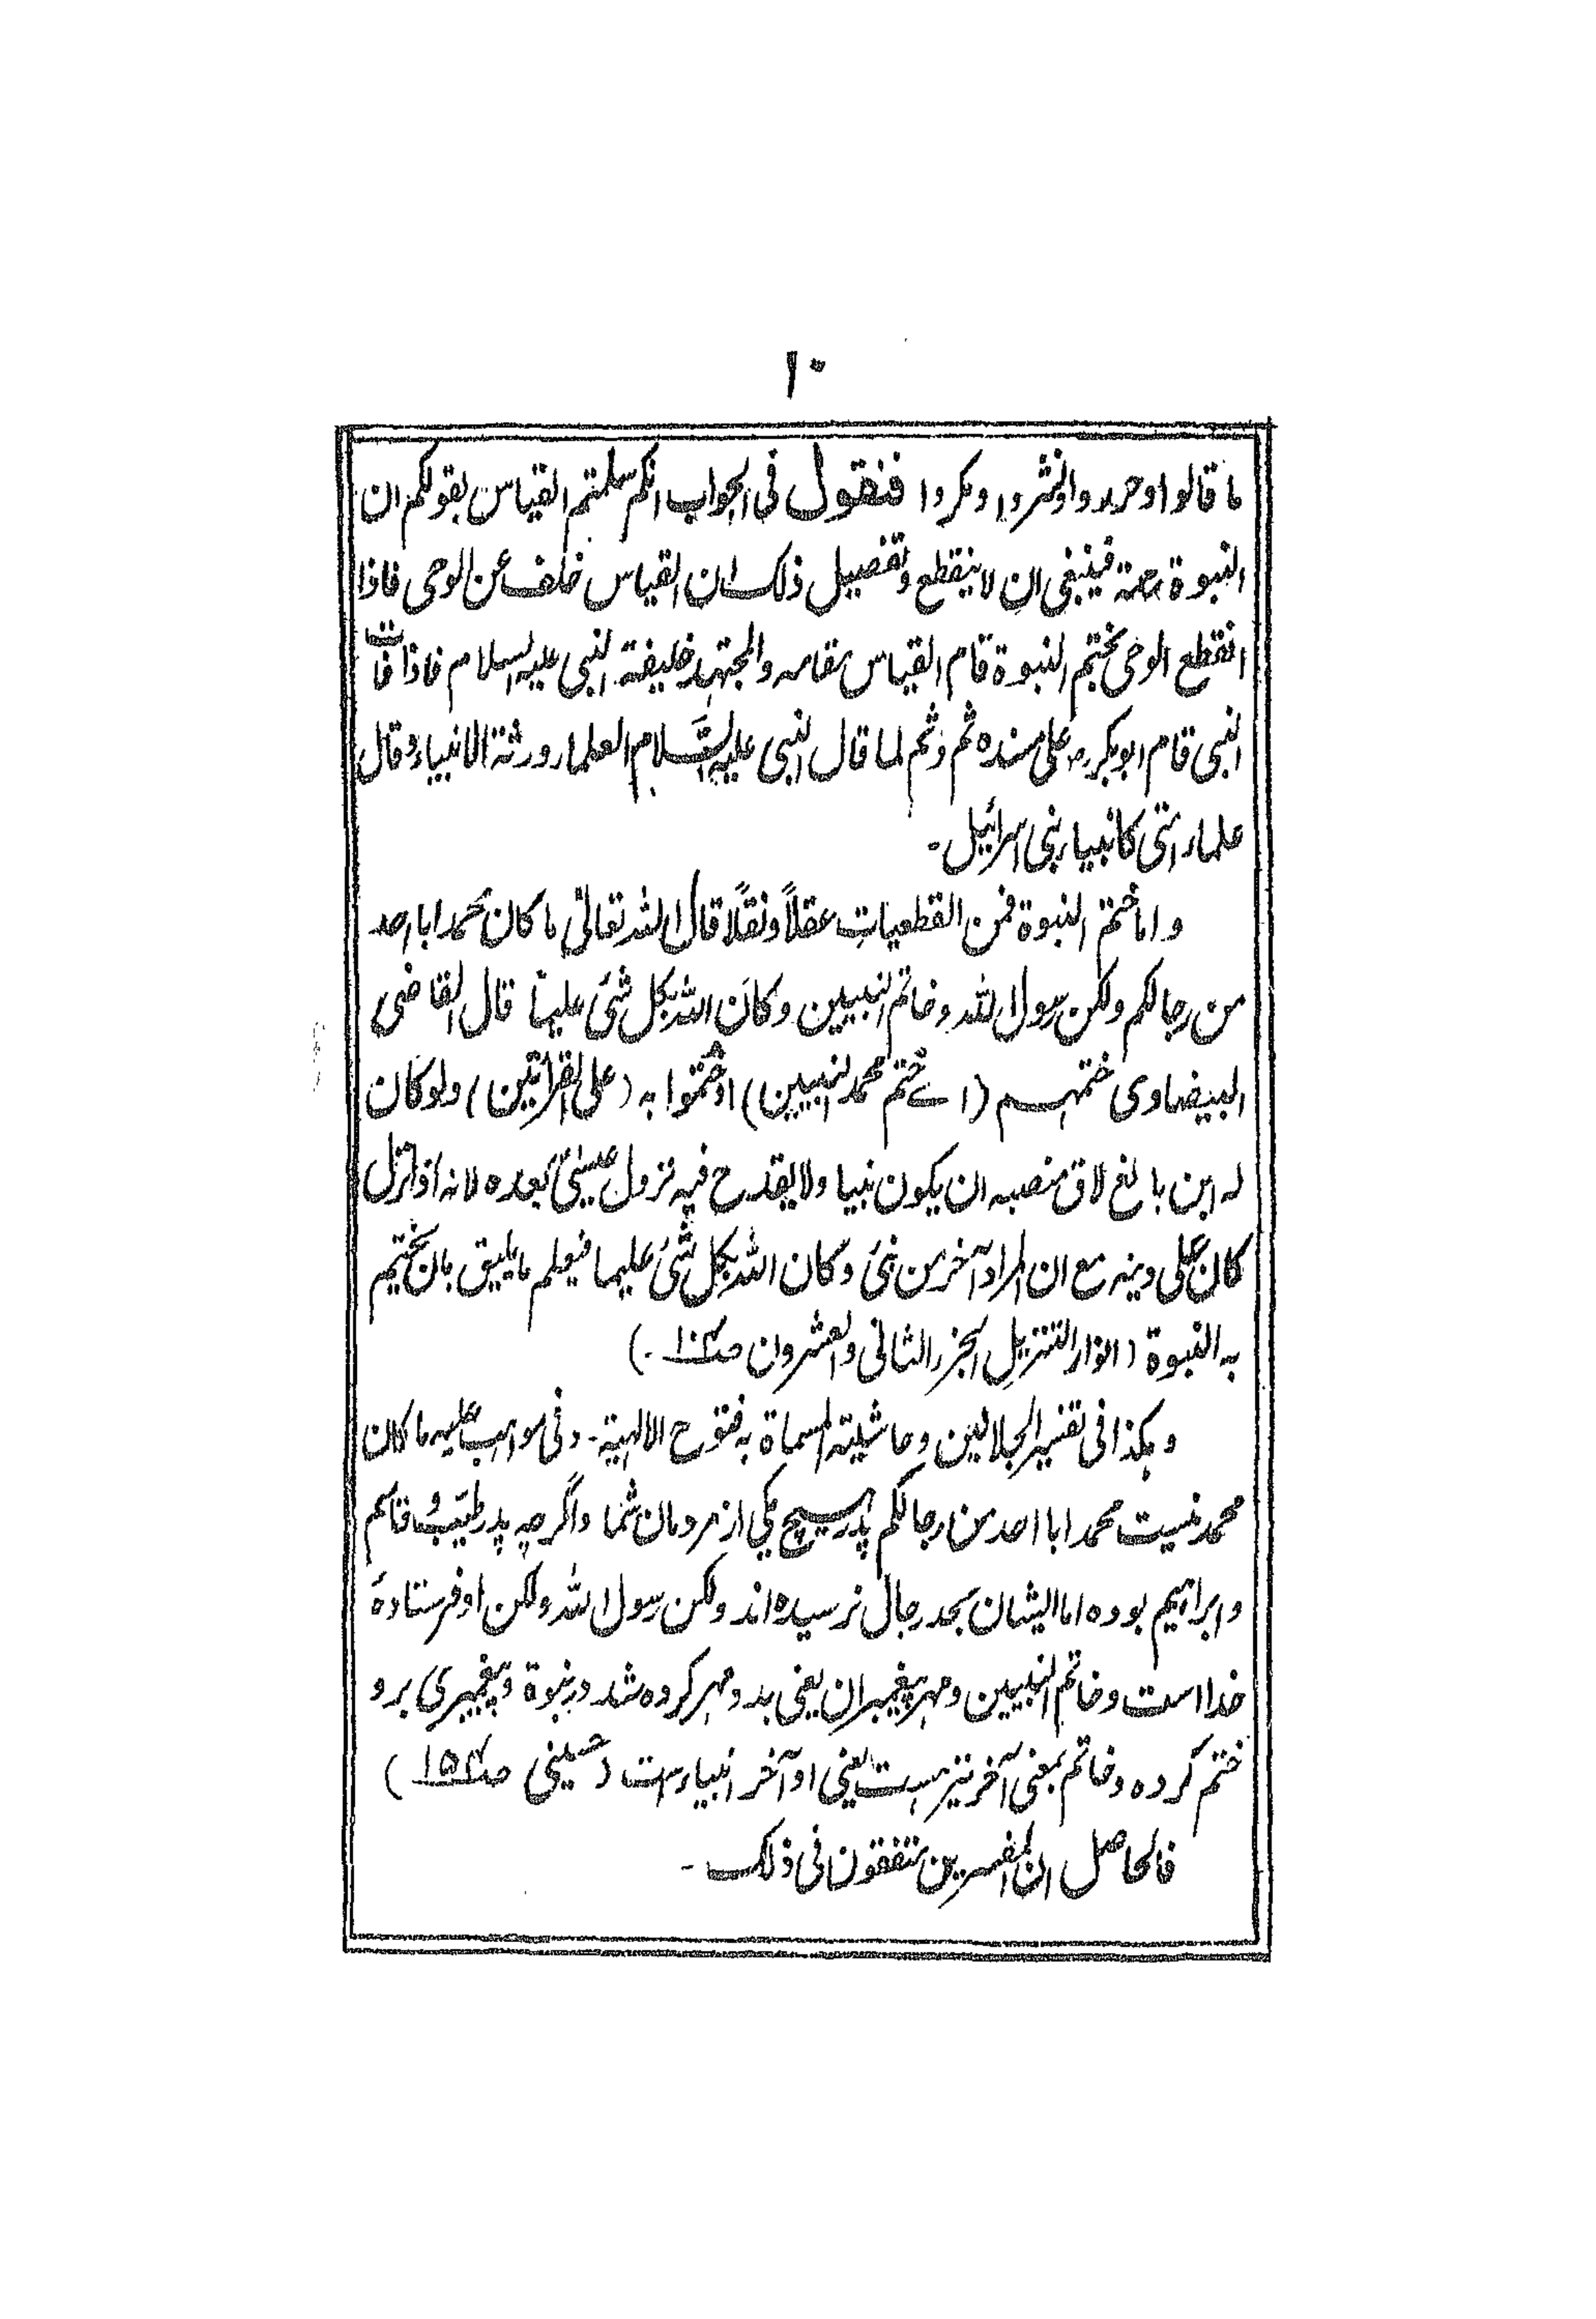 ۱۰
ما قالوا وحرروا ونشروا ومکروا فنقول فی الجواب انکم سلمتم القیاس بقولکم ان
النبوة رحمة فینبغی ان لا ینقطع وتفصیل ذلک ان القیاس خلف عن الوحی فاذا
انقطع الوحی بختم النبوة قام القیاس مقامه والمجتهد خلیفة النبی علیه السلام فاذا فات
النبی قام ابوبکر رض علی مسنده ثم وثم لما قال النبی علیه السَّلام العلماء ورثة الانبیاء وقال
علماء امتی کانبیاء بنی اسرائیل۔
واما ختم النبوة فمن القطعیاتِ عقلاً ونقلاً قال الله تعالیٰ ما کان محمد ابا احد
من رجالکم ولکن رسول الله وخاتم النبیین وکان الله بکل شیٔ علیماً قال القاضی
البیضاوی ختمهم (اے ختم محمد النبیین) اوختموا به (علی القرأتین) ولو کان
له ابن بالغ لاق منصبه ان یکون نبیا ولا یقدح فیه نزول عیسیٰ بعده لانه اذا نزل
کان علی دینه مع ان المراد آخر من نبیٔ وکان الله بکل شیٔ علیما فیعلم ما یلیق بان یختم
به النبوة (انوار التنزیل الجزء الثانی والعشرون صـ۱۰۳۔)
وهکذا فی تفسیر الجلالین وحاشیته المسماة به فتوح الالهیة۔ وفی مواهب علیه ما کان
محمد نیست محمد ابا احد من رجالکم پدر هیچ یکی از مردمان شما واگرچه پدر طیّب و قاسم
وابراهیم بوده اما ایشان بحد رجال نرسیده اند ولکن رسول الله ولکن او فرستادۂ
خدا است وخاتم النبیین ومهر پیغمبران یعنی بدو مهر کرده شد در نبوة وپیغمبری برو
ختم کرده وخاتم بمعنی آخر نیز هست یعنی او آخر انبیاء است (حسینی صـ۱۵۴)
فالحاصل ان المفسرین متفقون فی ذلک۔